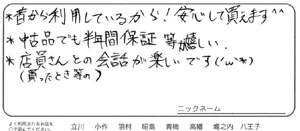 *昔から利用しているから!安心して買えます^^
*中古品でも半年間保証等嬉しい.
*店員さんとの会話が楽しいです(´ω`*)
(買ったとき等の)
ニックネーム
よく利用されるお店を
○で囲んでください。
立川 小作 羽村 昭島 青梅 高幡 堀之内 八王子